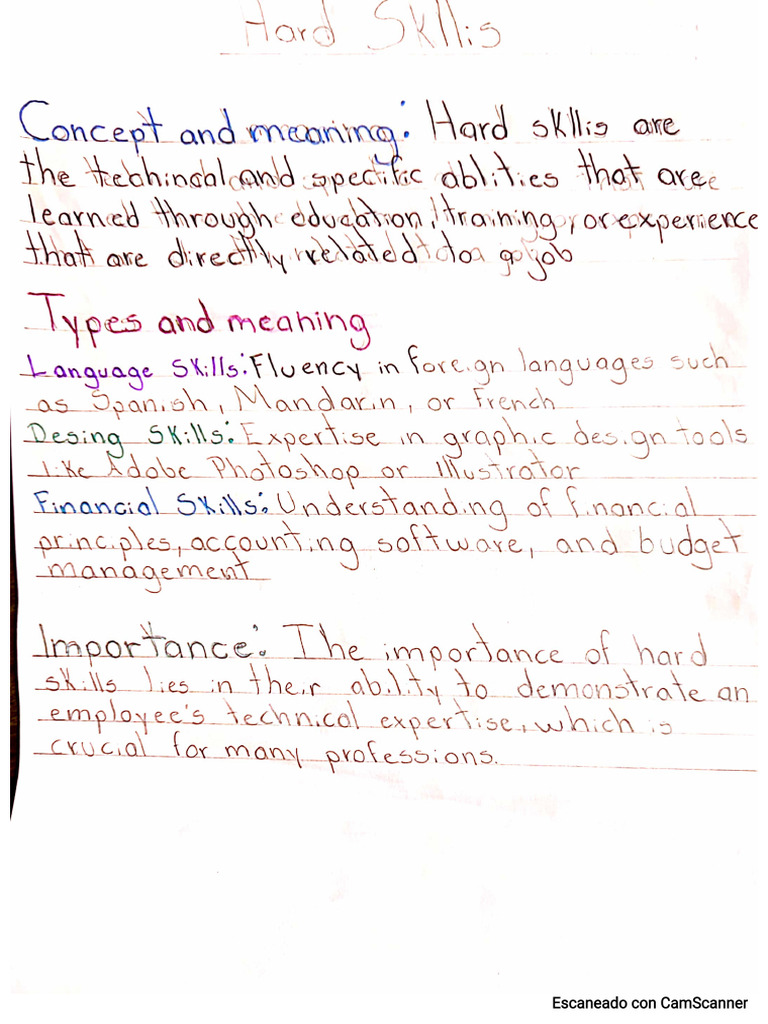 Hard Skllis
Concept and meaning: Hard skllis are
the techincal and specific ablities that are
learned through education, training, or experience
that are directly related to a job
Types and meaning
Language Skills: Fluency in foreign languages such
as Spanish, Mandarin, or French
Desing Skills: Expertise in graphic design tools
like Adobe Photoshop or Illustrator
Financial Skills: Understanding of financial
principles, accounting software, and budget
management
Importance: The importance of hard
skills lies in their ability to demonstrate an
employee's technical expertise, which is
crucial for many professions.
Escaneado con CamScanner